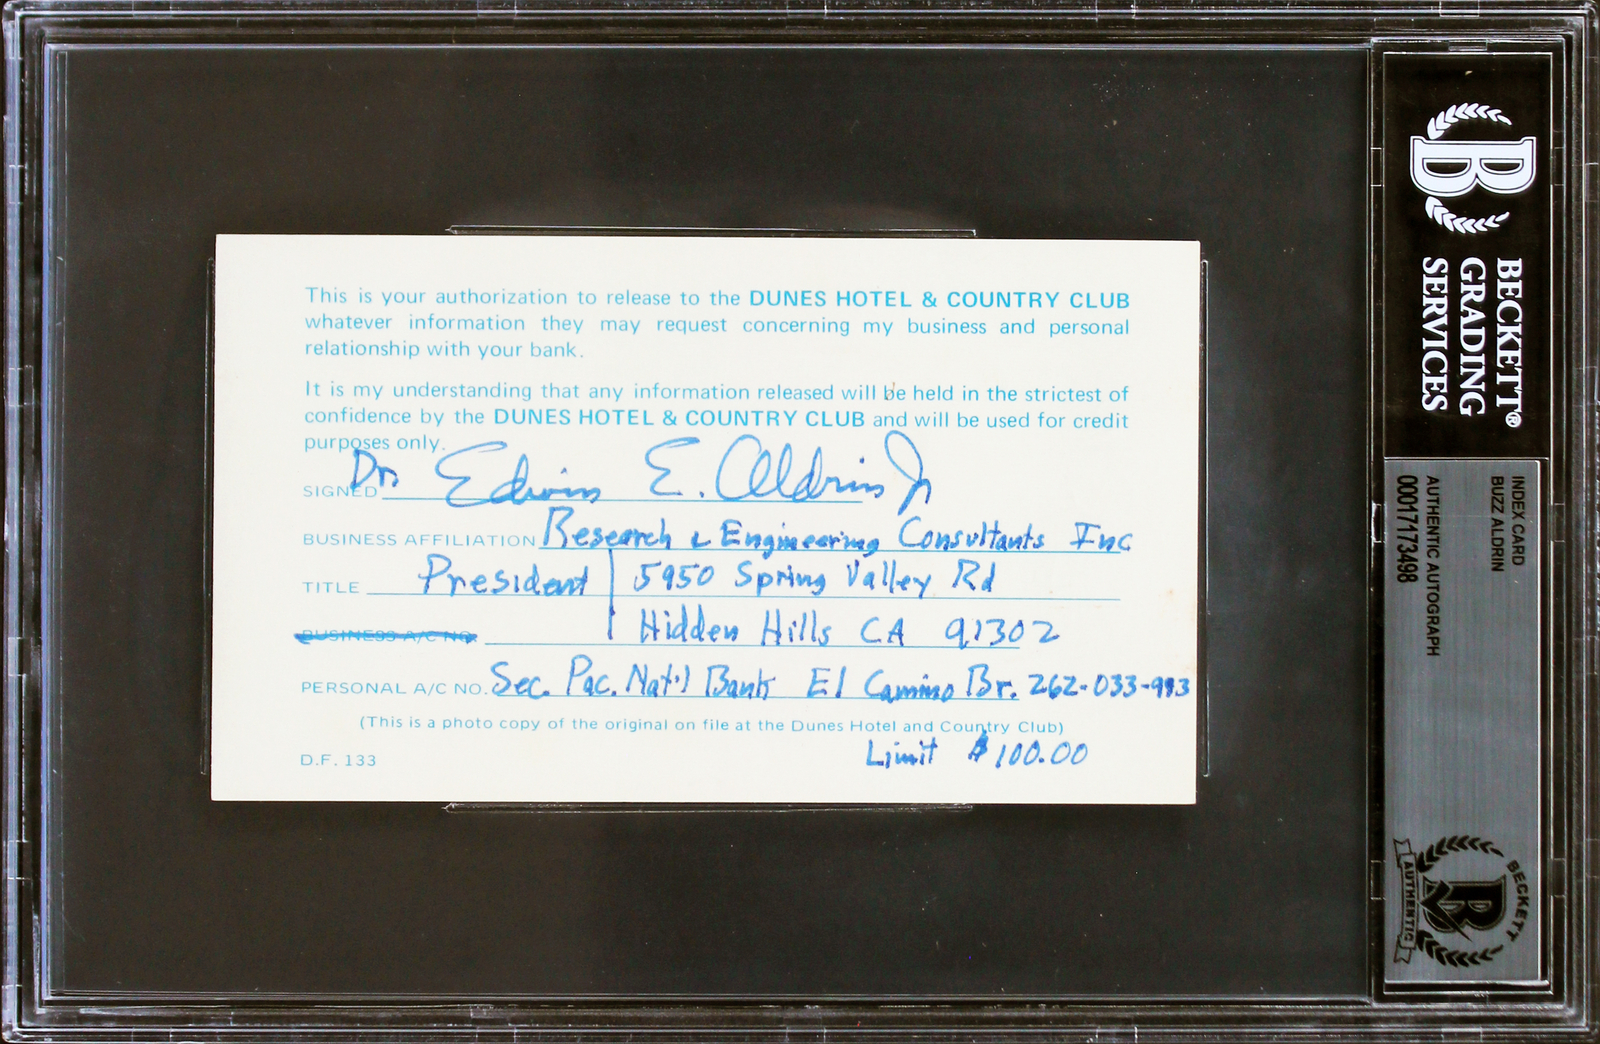 This is your authorization to release to the DUNES HOTEL & COUNTRY CLUB
whatever information they may request concerning my business and personal
relationship with your bank.
It is my understanding that any information released will be held in the strictest of
confidence by the DUNES HOTEL & COUNTRY CLUB and will be used for credit
purposes only.
SIGNED Dr Edwin E. Aldrin Jr
BUSINESS AFFILIATION Research & Engineering Consultants Inc
TITLE President 5950 Spring Valley Rd
BUSINESS A/C NO. Hidden Hills CA 91302
PERSONAL A/C NO. Sec. Pac. Nat'l Bank El Camino Br. 262-033-993
(This is a photo copy of the original on file at the Dunes Hotel and Country Club)
Limit $100.00
D.F. 133
BECKETT®
GRADING
SERVICES
INDEX CARD
BUZZ ALDRIN
AUTHENTIC AUTOGRAPH
00017173498
BECKETT
AUTHENTIC